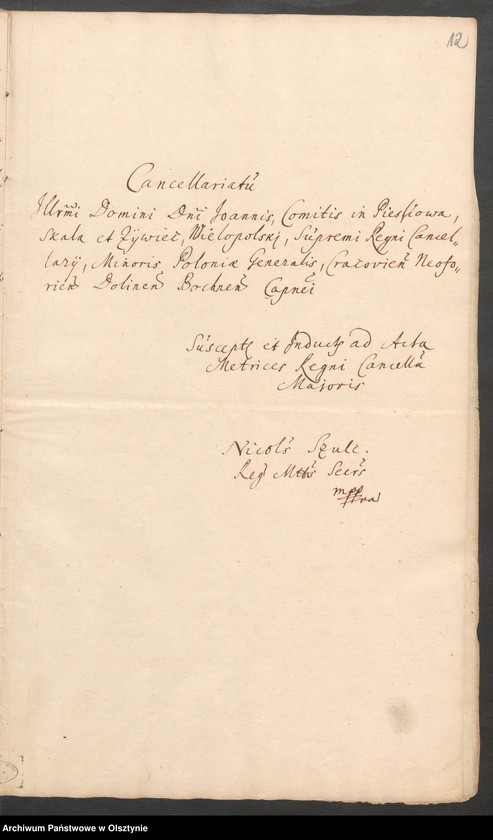 12
Cancellariatũ
Illrm̃i Domini Dñi Joannis, Comitis in Pieskowa,
Skała et Zywiec, Wielopolskj, Supremi Regni Cancel-
larij, Minoris Poloniæ Generalis, Cracovień Neofo-
rień Dolineń Bochneń Capnei
Suscepts et Inducts ad Acta
Metrices Regni Cancella
Maioris
Nicols Szulc.
Reg Mtts Secrs
mpp
Archiwum Państwowe w Olsztynie